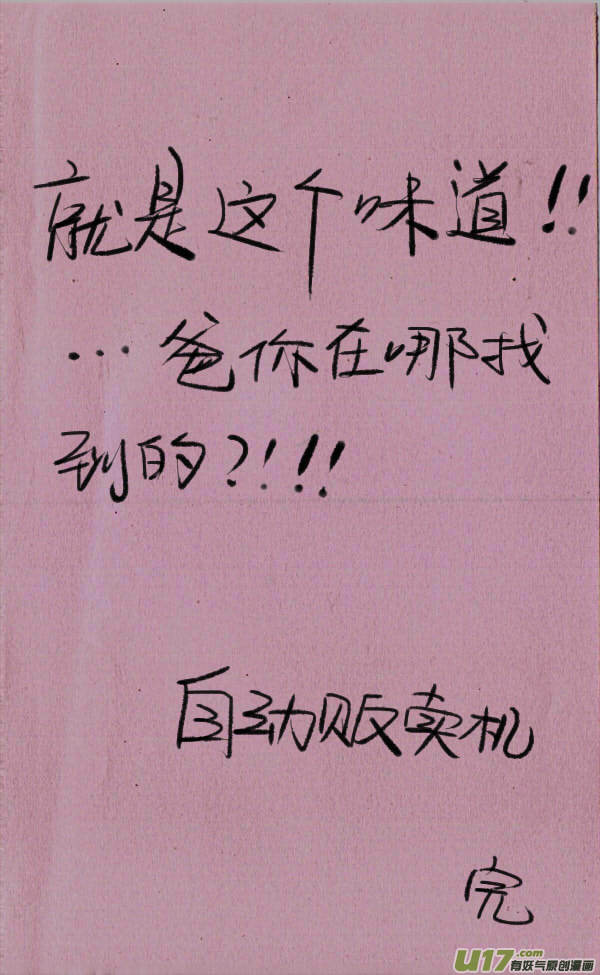 就是这个味道!!
...爸你在哪找
到的?!!!
自动贩卖机
完
U17.com
有妖气原创漫画